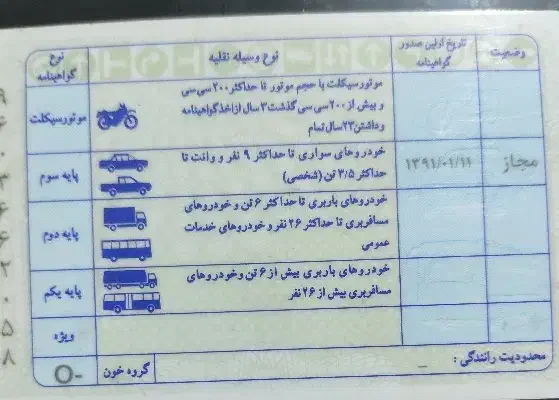 نوع گواهینامه
نوع وسیله نقلیه
تاریخ اولین صدور گواهینامه
وضعیت
موتورسیکلت
موتورسیکلت با حجم موتور تا حداکثر ۲۰۰ سی سی
و بیش از ۲۰۰ سی سی گذشت ۳ سال از اخذ گواهینامه
و داشتن ۲۳ سال تمام
پایه سوم
خودروهای سواری تا حداکثر ۹ نفر و وانت تا
حداکثر ۳/۵ تن (شخصی)
۱۳۹۱/۰۱/۱۱
مجاز
پایه دوم
خودروهای باربری تا حداکثر ۶ تن و خودروهای
مسافربری تا حداکثر ۲۶ نفر و خودروهای خدمات
عمومی
پایه یکم
خودروهای باربری بیش از ۶ تن و خودروهای
مسافربری بیش از ۲۶ نفر
ویژه
O-
گروه خون
محدودیت رانندگی : -